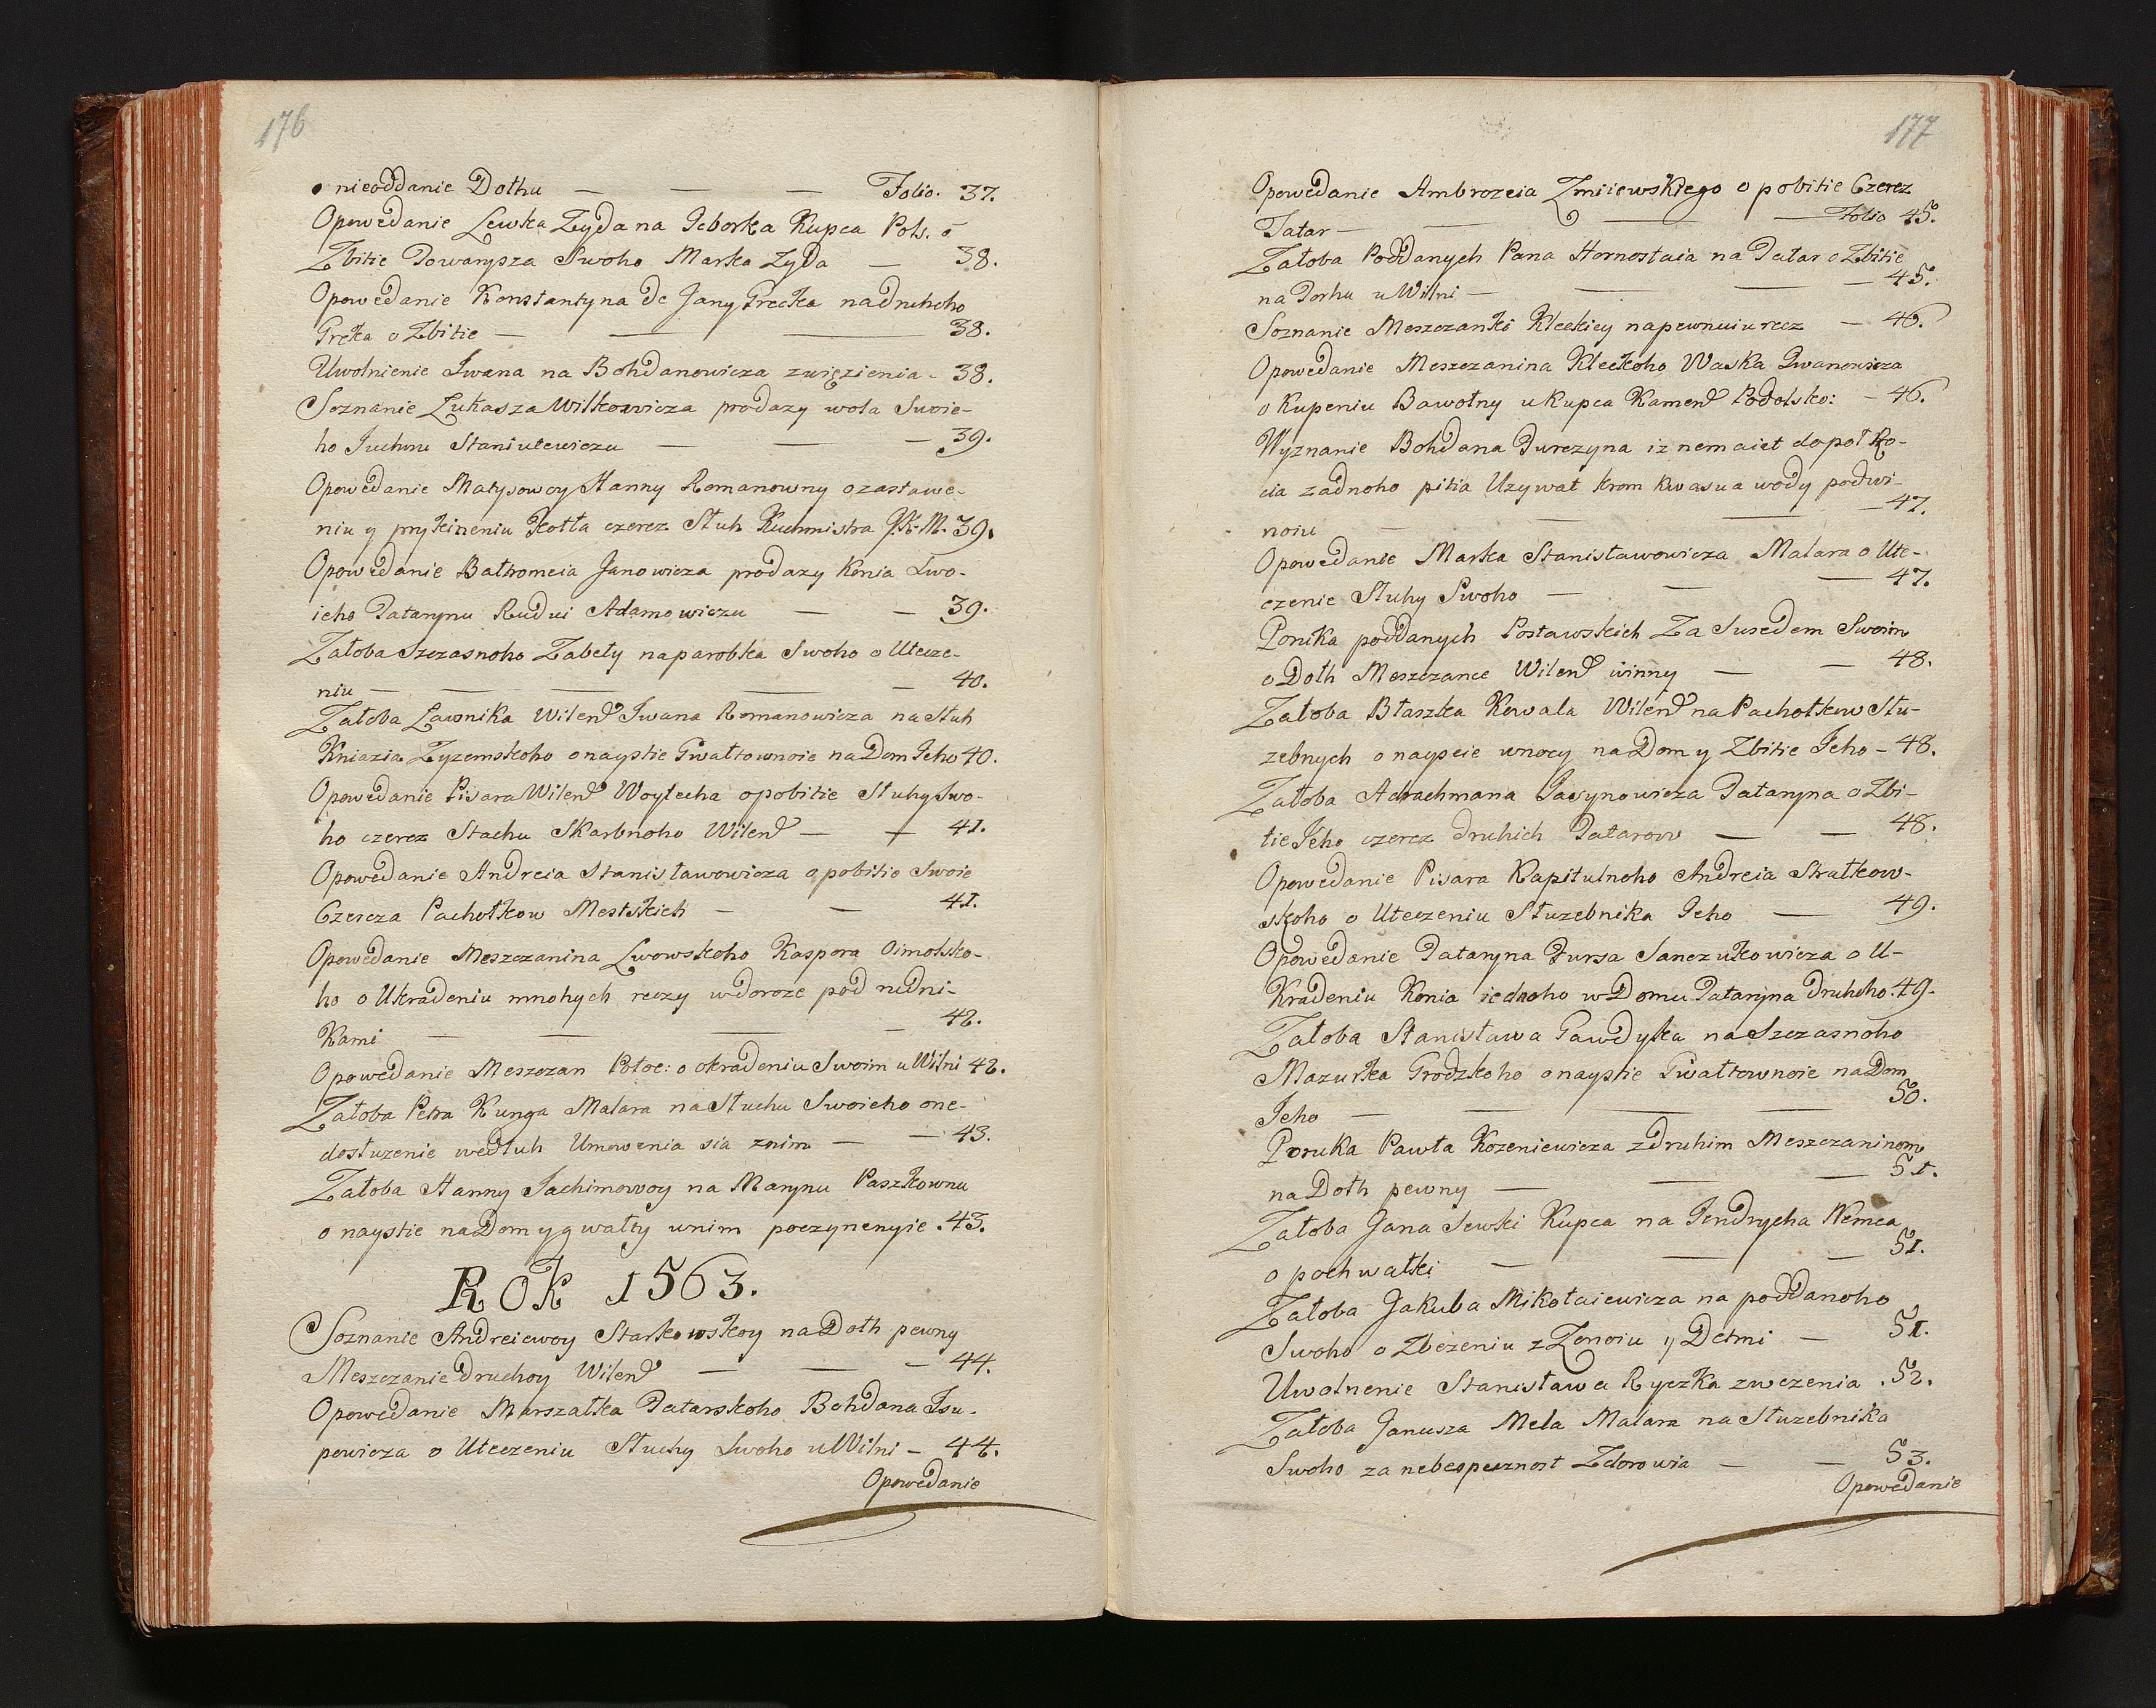 176
o nieoddanie Dołhu — — — Folio. 37.
Opowedanie Lewka Żyda na Jeborka Kupca Pols. o
Zbitie Towarysza Swoho Marka Żyda — 38.
Opowedanie Konstantyna de Jany Greka nadruhoho
Greka o Zbitie — — — 38.
Uwolnienie Iwana na Bohdanowicza zwięzienia - 38.
Soznanie Łukasza Wilkowicza prodazy woła Swoie-
ho Juchnu Staniulewiczu — — — 39.
Opowedanie Matysowoy Hanny Romanowny ozastawe-
niu y prykineniu Kotła czerez Słuh Kuchmistra J.K.M. 39.
Opowedanie Bałtromeia Janowicza prodazy Konia Swo-
ieho Tatarynu Rudui Adamowiczu — — 39.
Załoba Szczasnoho Zabeły naparobka Swoho o Utecze-
niu — — — — — 40.
Załoba Ławnika Wilend Iwana Romanowicza na Słuh
Kniazia Zyzemskoho onaystie Gwałtownoie naDom Jeho 40.
Opowedanie Pisara Wilend Woytecha opobitie Słuhy Swo-
ho czerez Stachu Skarbnoho Wilend — — 41.
Opowedanie Andreia Stanisławowicza o pobitie Swoie
Czereza Pachołkow Mestskich — — 41.
Opowedanie Meszczanina Lwowskoho Kaspora Oimolsko-
ho o Ukradeniu mnohych reczy wdoroze pod rudni-
Kami — — — — 42.
Opowedanie Meszczan Połoc: o okradeniu Swoim uWilni 42.
Załoba Petra Kunga Malara na Słuchu Swoieho one-
dosłuzenie wedłuh Umowenia sia znim — — 43.
Załoba Hanny Jachimowoy na Marynu Paszkownu
o naystie naDom y gwałty unim poczynenyie . 43.
ROK 1563.
Soznanie Andreiewoy Starkowskoy naDołh pewny
Meszczanie Druchoy Wilend — — — 44.
Opowedanie Marszałka Tatarskoho Bohdana Isu-
powicza o Uteczeniu Słuchy Swoho uWilni — 44.
Opowedanie
177
Opowedanie Ambrozeia Zmiiewskiego o pobitie Czerez
Tatar — — — — Folio 45.
Załoba Poddanych Pana Hornostaia na Tatar o Zbitie
na Torhu uWilni — — — — 45.
Soznanie Meszczanki Kleckiey napewnuiu recz — 46.
Opowedanie Meszczanina Kleckoho Waska Iwanowicza
o Kupeniu Bawołny u Kupca Kamend Podolsko: — 46.
Wyznanie Bohdana Turczyna iz nemaiet dopoł Ro-
cia zadnoho pitia Uzywat krom kwasu a wody podwi-
noiu — — — — 47.
Opowedanie Marka Stanisławowicza Malara o Ute-
czenie Słuhy Swoho — — — 47.
Poruka poddanych Postawskich Za Susedem Swoim
o Dołh Meszczance Wilend winny — — 48.
Załoba Błaszka Kowala Wilend na Pachołkow Słu-
zebnych o nayscie wnocy na Dom y Zbitie Jeho — 48.
Załoba Adrachmana Jasynowicza Tataryna o Zbi-
tie Jeho czerez druhich Tatarow — — 48.
Opowedanie Pisara Kapitulnoho Andreia Stratkow-
skoho o Uteczeniu Słuzebnika Jeho — 49.
Opowedanie Tataryna Tursa Sanczukowicza o U-
Kradeniu Konia iednoho w Domu Tataryna druhoho. 49.
Załoba Stanisława Gawdyka na Szczasnoho
Mazurka Grodzkoho onaystie Gwałtownoie naDom
Jeho — — — — 50.
Poruka Pawła Kozeniewicza zdruhim Meszczaninom
na Dołh pewny — — — 51.
Załoba Jana Sewski Kupca na Jendrycha Nemca
o pochwałki — — — 51.
Załoba Jakuba Mikołaiewicza na poddanoho
Swoho o Zbezeniu z Zonoiu y Detmi — 51.
Uwolnenie Stanisława Ryczka zwezenia . 52.
Załoba Janusza Mela Malara na Słuzebnika
Swoho za nebespecznost Zdorowia — — 53.
Opowedanie